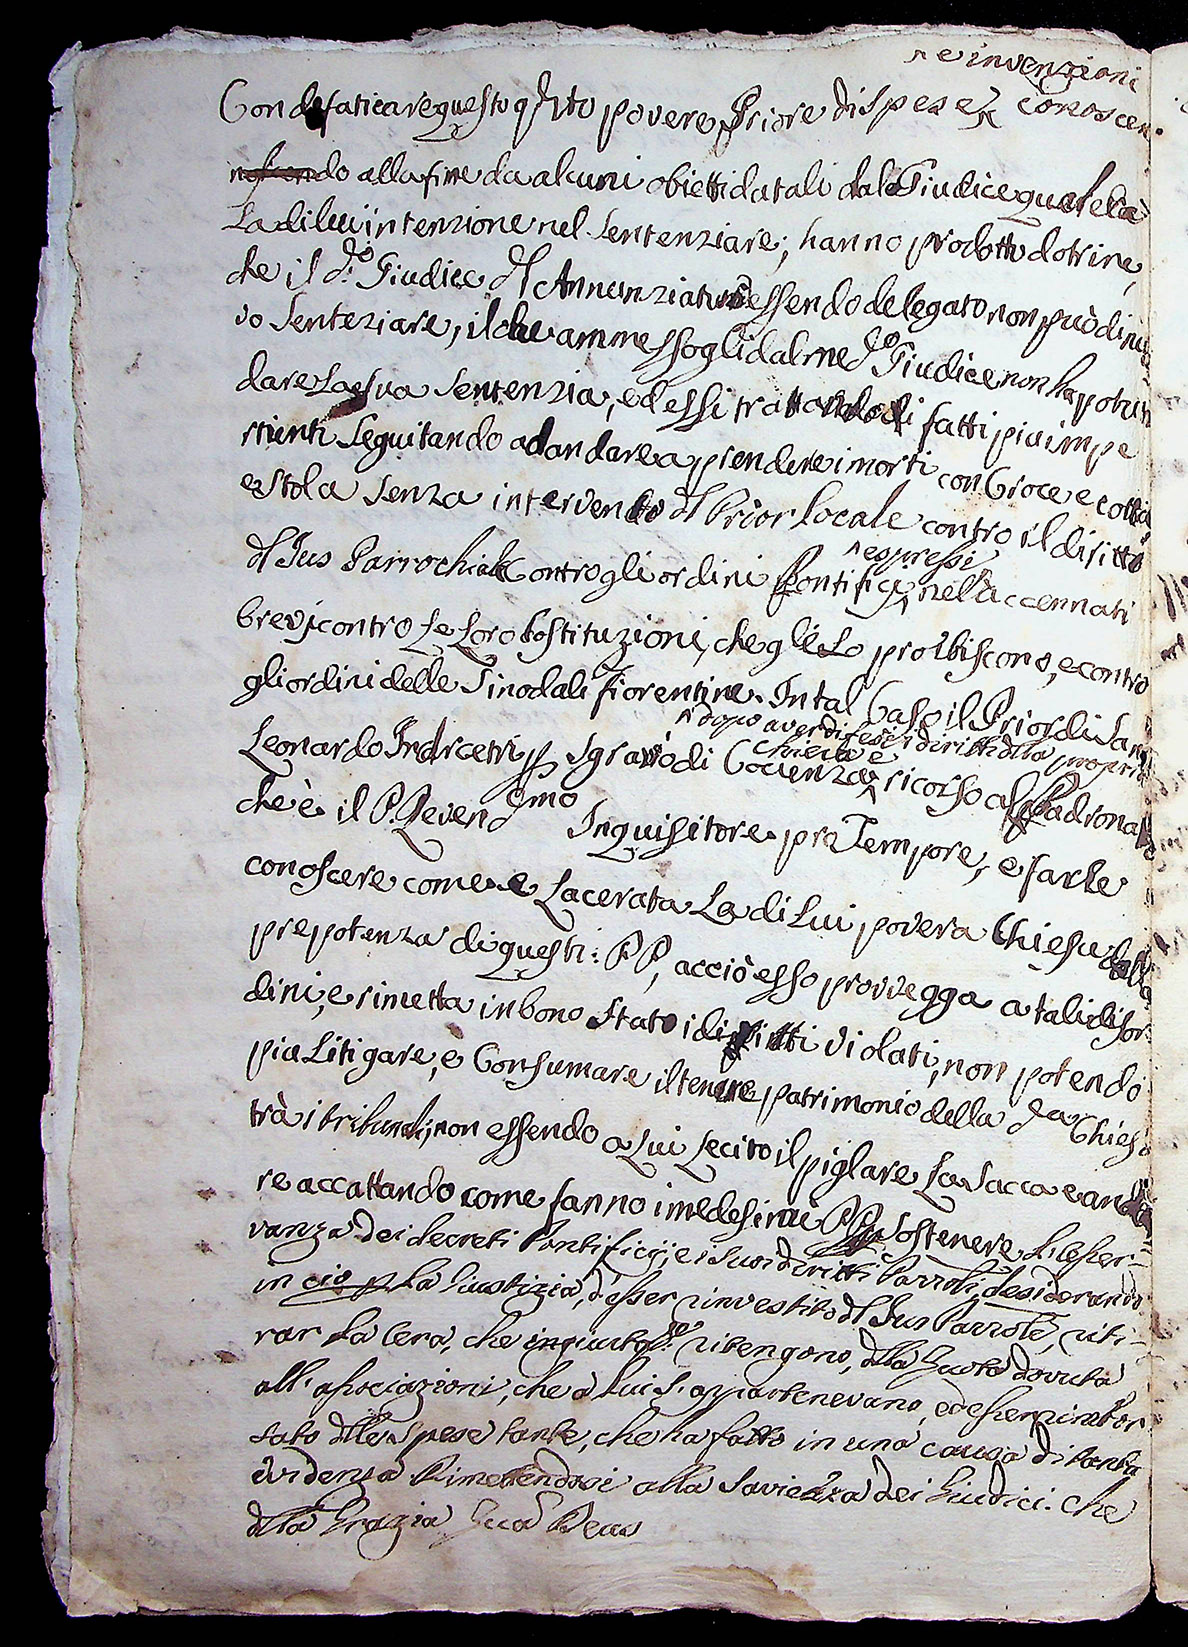 e invenzioni
Con defaticare questo povere Priore di spese, conoscen
do alla fine da alcuni obietti datali dal Giudice qual'era
La di lui intenzione nel Sentenziare; hanno prodotto dotrine,
che il d.º Giudice dl Annunziatura essendo delegato non può di nu
vo Senteziare, il che ammessogli dal med.º Giudice non ha potuto
dare La sua Sentenzia, ed essi trattandodi fatti piu impe
rtienti Seguitando ad andare a prendere i morti con Croce e cotta
e stola senza intervento dl Prior locale contro il diritto
espressi
dl Jus Parrochiale Contro gli ordini Pontifici nell'accennati
brevi contro Le Loro Costituzioni, che gle Lo proibiscono, e contro
gli ordini delle Sinodali fiorentine. In tal Caso il Prior di San
dopo aver difesi i diritti dlla propria
Chiesa e
Leonardo in Arcetri p Sgravio di Cocienza ricorso al Padrona
che è il P. Reverendmo Inquisitore pro Tempore, e farle
conoscere come e Lacerata La di Lui povera Chiesa dalla
prepotenza di questi: PP, acciò esso provvegga a tali disor
dini, e rimetta in bono Stato i diritti violati, non potendo
piu Litigare, e Consumare il tenue patrimonio della da Chiesa
trà i tribunali; non essendo a Lui Lecito il piglare La Sacca e anda
re accattando come fanno i medesimi PP p Sostenere L'esser-
vanza dei decreti Pontificij, e i suoi diritti Parroli, desiderando
in cio p La Giustizia, d'esser rinvestito dl Jus Parrole, riti-
rar La Cera, che ingiustate ritengono, dlla Quota dovuta
all'associazioni, che a Lui S'appartenevano, ed esser rimbor
sato dlle Spese tante, che ha fatto in una causa di tanta
evidenza Rimettendosi alla Saviezza dei Giudici. Che
dlla Grazia Deus